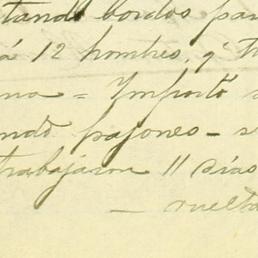 tando bordos par
á 12 hombres, y t
na = Importó
ndo pajones - s
trabajaron 11 días
- vuelta